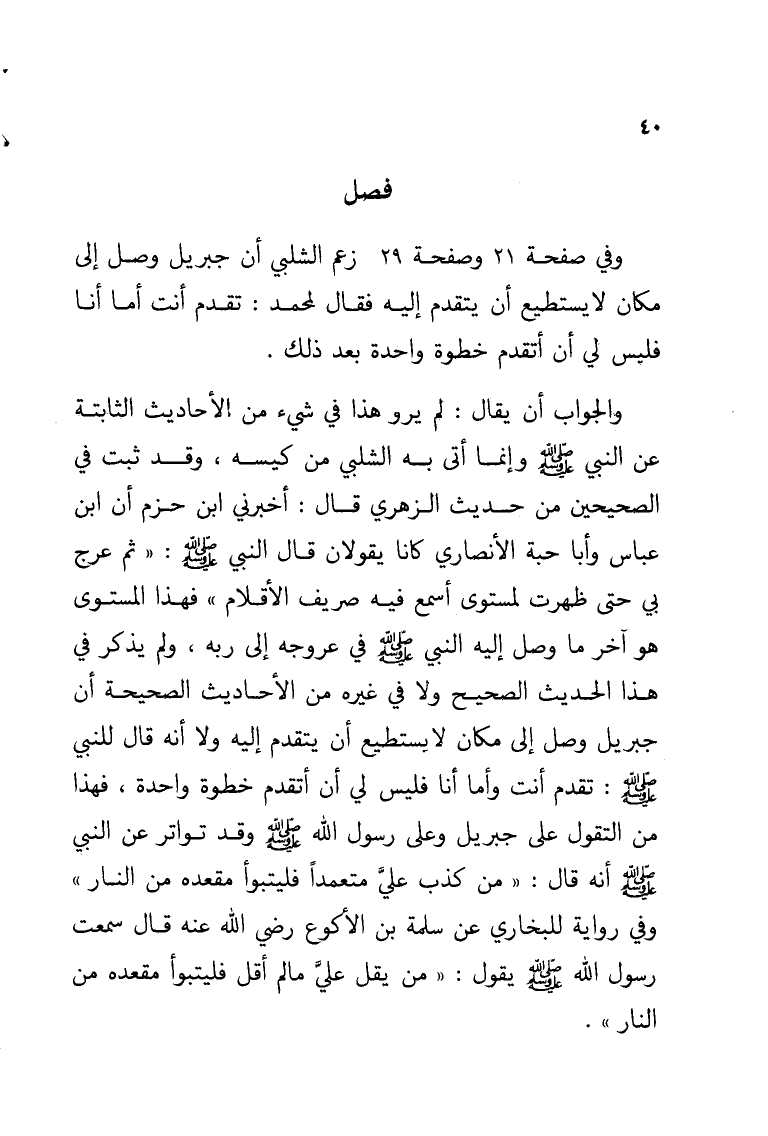 ٤٠
فصل
وفي صفحة ٢١ وصفحة ٢٩ زعم الشلبي أن جبريل وصل إلى
مكان لايستطيع أن يتقدم إليه فقال لمحمد : تقدم أنت أما أنا
فليس لي أن أتقدم خطوة واحدة بعد ذلك .
والجواب أن يقال : لم يرو هذا في شيء من الأحاديث الثابتة
عن النبي ﷺ وإنما أتى به الشلبي من كيسه ، وقد ثبت في
الصحيحين من حديث الزهري قال : أخبرني ابن حزم أن ابن
عباس وأبا حبة الأنصاري كانا يقولان قال النبي ﷺ : « ثم عرج
بي حتى ظهرت لمستوى أسمع فيه صريف الأقلام » فهذا المستوى
هو آخر ما وصل إليه النبي ﷺ في عروجه إلى ربه ، ولم يذكر في
هذا الحديث الصحيح ولا في غيره من الأحاديث الصحيحة أن
جبريل وصل إلى مكان لايستطيع أن يتقدم إليه ولا أنه قال للنبي
ﷺ : تقدم أنت وأما أنا فليس لي أن أتقدم خطوة واحدة ، فهذا
من التقول على جبريل وعلى رسول الله ﷺ وقد تواتر عن النبي
ﷺ أنه قال : « من كذب عليَّ متعمداً فليتبوأ مقعده من النار »
وفي رواية للبخاري عن سلمة بن الأكوع رضي الله عنه قال سمعت
رسول الله ﷺ يقول : « من يقل عليَّ مالم أقل فليتبوأ مقعده من
النار » .